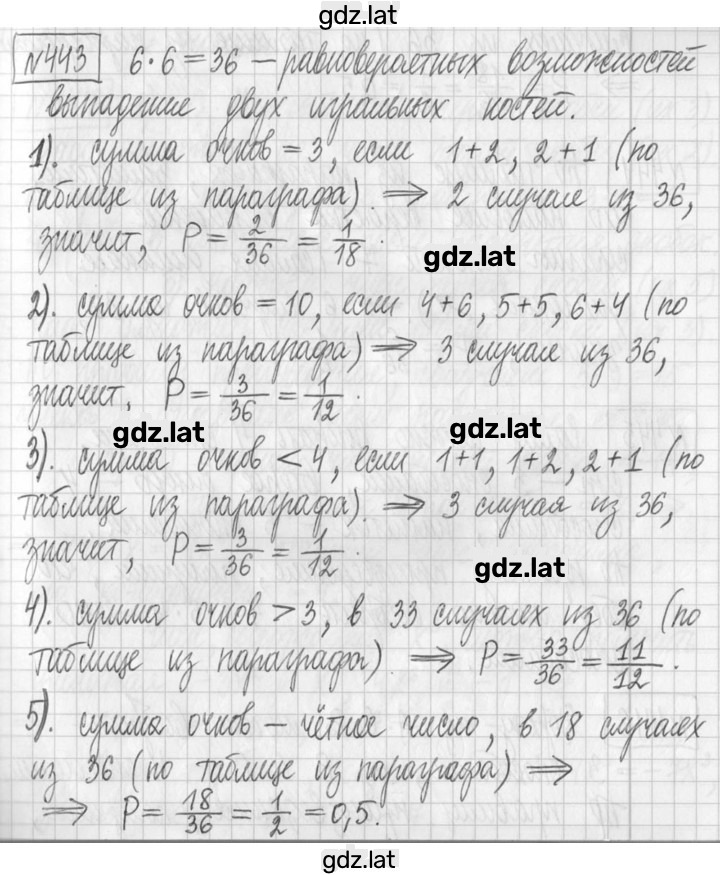 gdz.lat
№443 6·6=36 – равновероятных возможностей
выпадение двух игральных костей.
1). сумма очков = 3, если 1+2, 2+1 (по
таблице из параграфа). ⟹ 2 случае из 36,
значит, P = 2/36 = 1/18.
gdz.lat
2). сумма очков = 10, если 4+6, 5+5, 6+4 (по
таблице из параграфа) ⟹ 3 случае из 36,
значит, P = 3/36 = 1/12.
gdz.lat gdz.lat
3). сумма очков < 4, если 1+1, 1+2, 2+1 (по
таблице из параграфа). ⟹ 3 случая из 36,
значит, P = 3/36 = 1/12.
gdz.lat
4). сумма очков > 3, в 33 случаях из 36 (по
таблице из параграфа). ⟹ P = 33/36 = 11/12.
5). сумма очков – чётное число, в 18 случаях
из 36 (по таблице из параграфа) ⟹
⟹ P = 18/36 = 1/2 = 0,5.
gdz.lat